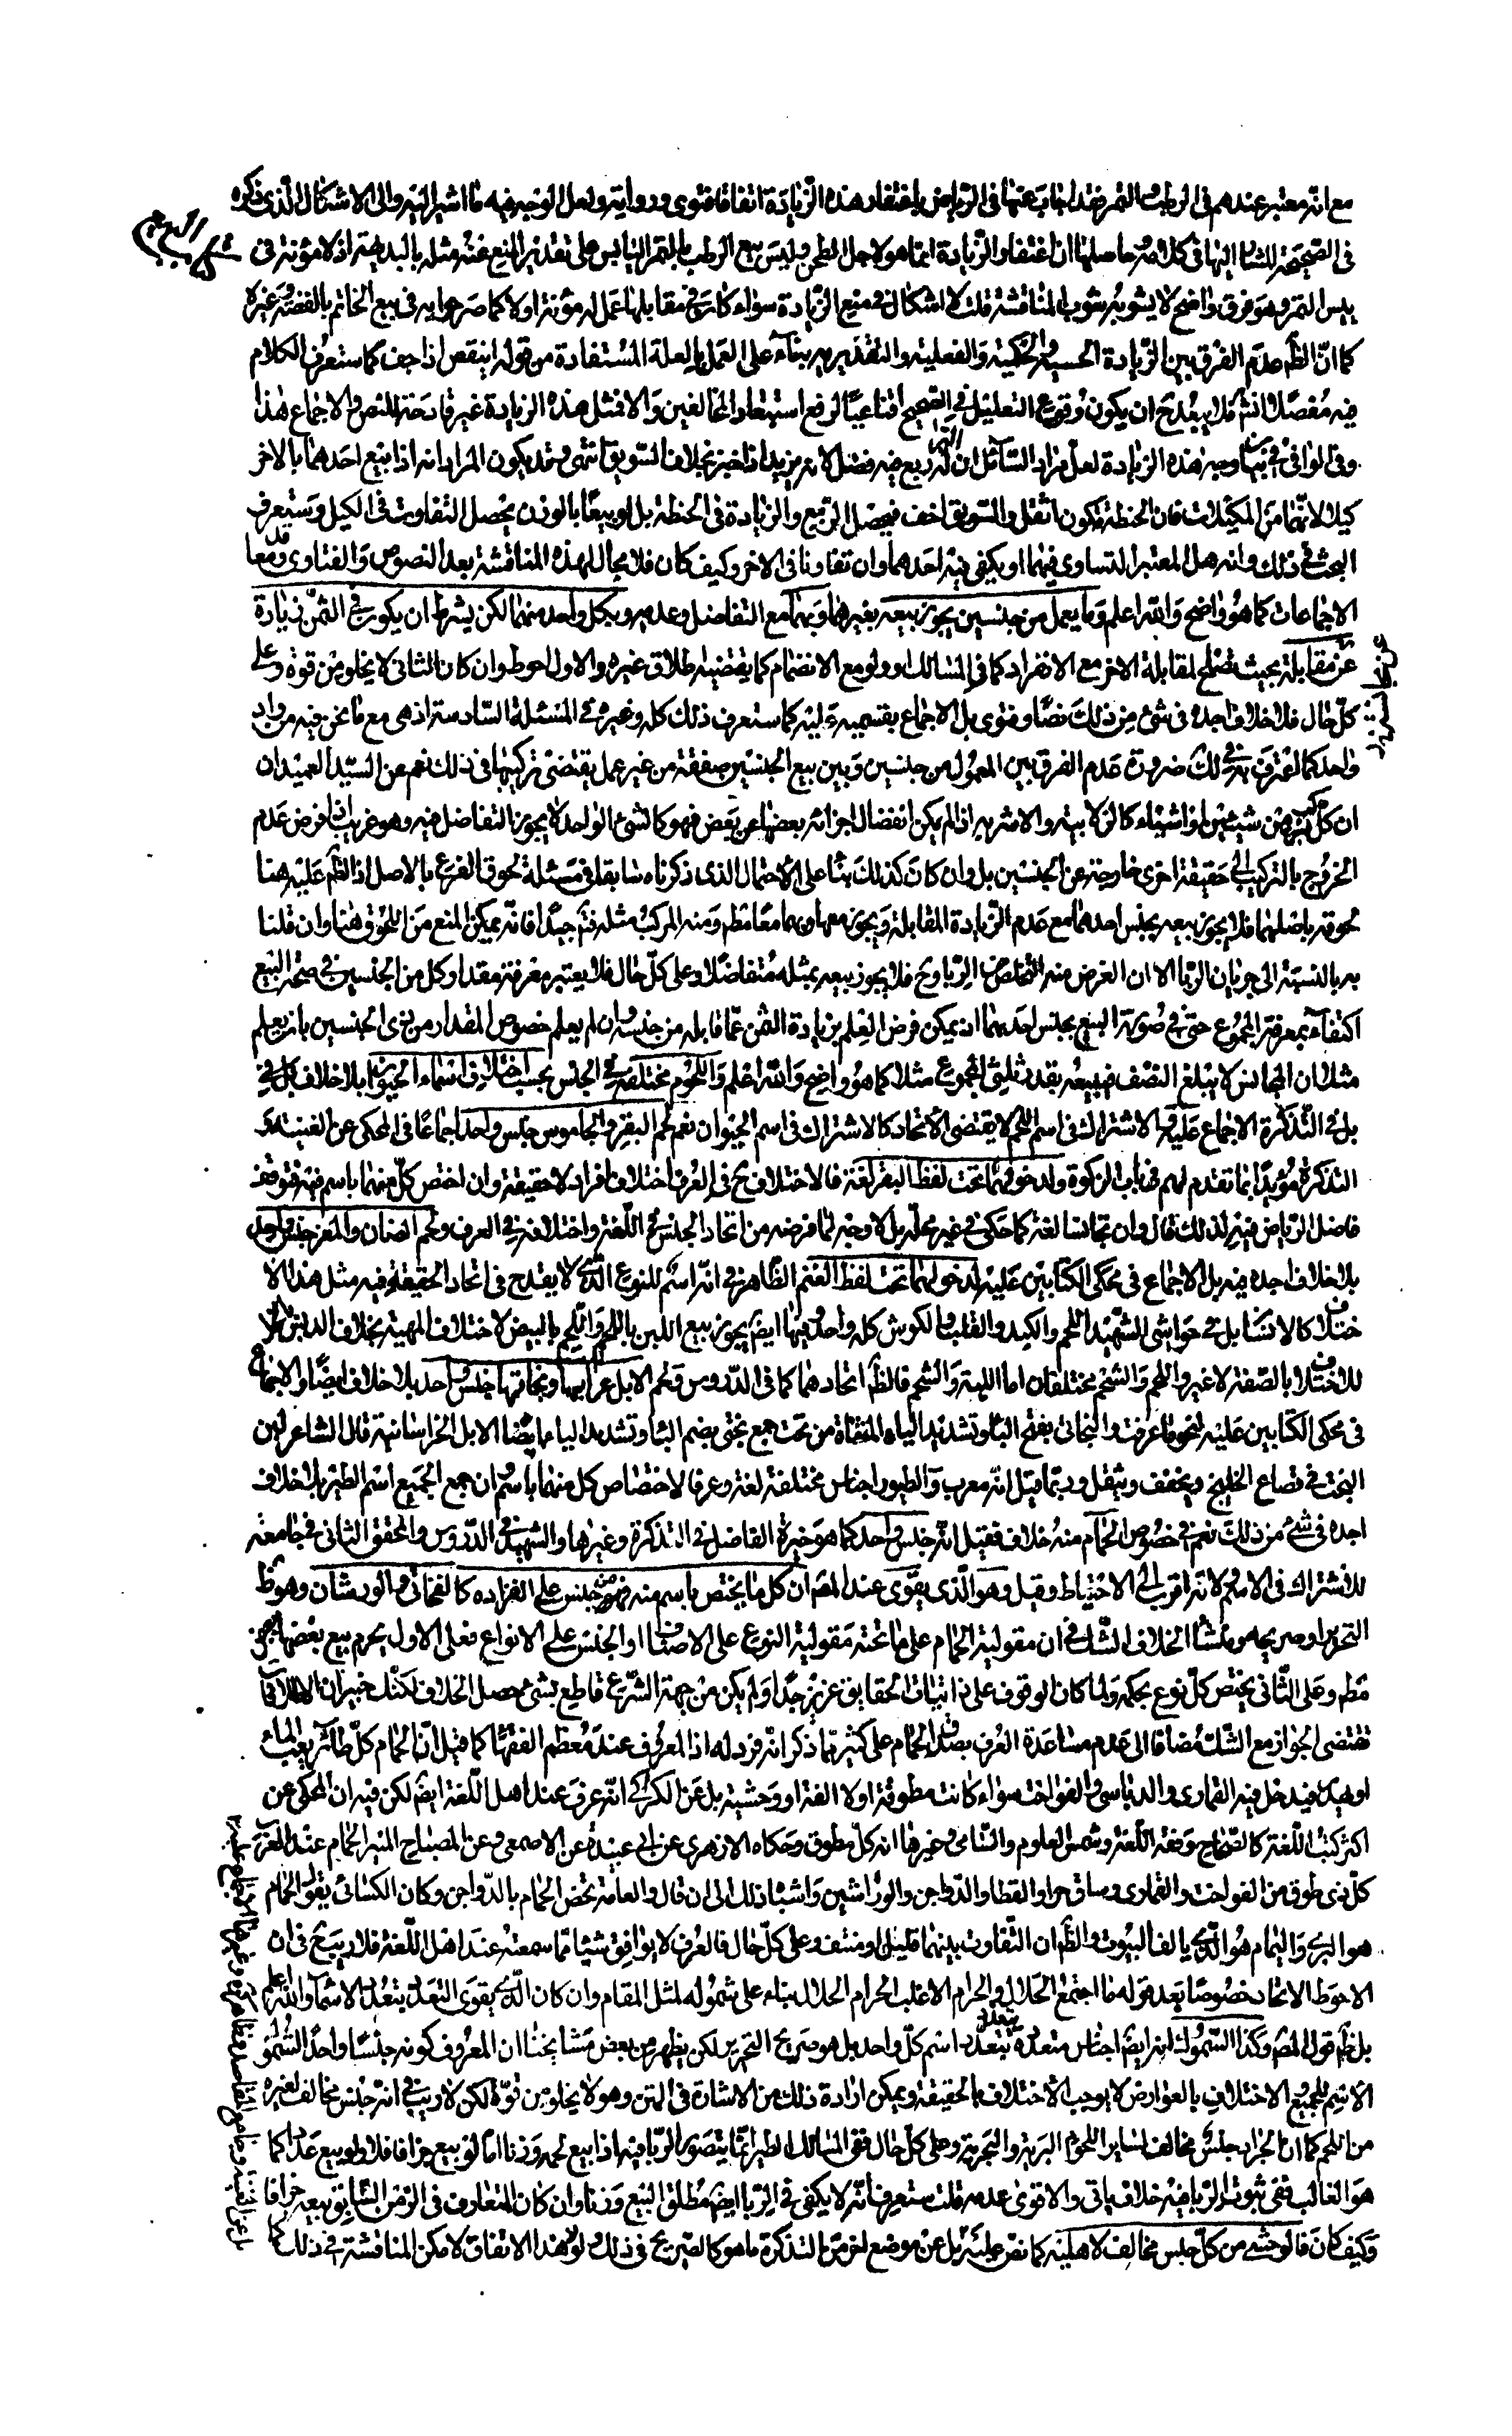 مع انه معتبر عندهم فى الرطب و التمر فقد اجاب عنها فى الرياض باغتفار هذه الزيادة اتفاقا فتوى ورواية ولعل الوجه فيه ما اشير اليه والى الاشكال الذى ذكره
فى الصحيحة المشار اليها فى كلامه حاصلها ان اغتفار الزيادة انما هو لاجل الطحن وليس بيع الرطب بالتمر اليابس على تقدير المنع عنه مثله بالبديهة اذ لا مؤنة فى
يبس التمر وهو فرق واضح لا يشوبه شوب المناقشة قلت لا اشكال فى منع الزيادة سواء كان فى مقابلها عمل له مؤنة اولا كما صرحوا به فى بيع الخاتم بالفضة وغيره
كما ان الظ عدم الفرق بين الزيادة الحسية والحكمية والفعلية والتقديرية بناء على العمل بالعلة المستفادة من قوله اينقص اذا جف كما ستعرف الكلام
فيه مفصلا انش فلا يبعد ح ان يكون وقوع التعليل فى الصحيح اقناعيا لرفع استبعاد المخالفين والا فمثل هذه الزيادة غير قادحة للنص والاجماع هذا
وفى الوافى فى بيان وجه هذه الزيادة لعل مراد السائل ان الدقيق ريع فيه فضل لانه يزيد اذا خبز بخلاف السويق انتهى وقد يكون المراد انه اذا بيع احدهما بالاخر
كيلا لانهما من المكيلات فان الحنطة تكون اثقل والسويق اخف فيحصل الريع والزيادة فى الحنطة بل لو بيعا بالوزن يحصل التفاوت فى الكيل وستعرف
البحث فى ذلك وانه هل المعتبر التساوى فيهما او يكفى فيه احدهما وان تفاوتا فى الاخر وكيف كان فلا مجال لهذه المناقشة بعد النصوص والفتاوى ومعاقد
الاجماعات كما هو واضح والله اعلم وما يعمل من جنسين يجوز بيعه بغيرهما وبهما مع التفاضل وعدمه وبكل واحد منهما لكن بشرط ان يكون فى الثمن زيادة
عن مقابله بحيث تصلح لمقابلة الاخر مع الانفراد كما فى المسالك او ولو مع الانضمام كما يقتضيه اطلاق غيره والاول احوط وان كان الثانى لا يخلو من قوة وعلى
كل حال فلا خلاف اجده فى شئ من ذلك نصا وفتوى بل الاجماع بقسميه عليه كما ستعرف ذلك كله وغيره فى المسئلة السادسة اذ هى مع ما نحن فيه من واد
واحد كما اعترف به فى لك ضرورة عدم الفرق بين المعمول من جنسين وبين بيع الجنسين صفقة من غير عمل يقتضى تركيبها فى ذلك نعم عن السيد العميد ان
ان كل مركب من شيئين او اشياء كالزلابية والاشربة اذا لم يكن انفصال اجزائه بعضها عن بعض فهو كالشئ الواحد لا يجوز التفاضل فيه وهو غريب اذا فرض عدم
الخروج بالتركيب الى حقيقة اخرى خارجة عن الجنسين بل وان كان كذلك بناء على الاحتمال الذى ذكرناه سابقا فى مسئلة لحوق الفرع بالاصل اذ الظ عليه هنا
لحوقه باصلهما فلا يجوز بيعه بجنس احدهما مع عدم الزيادة المقابلة ويجوز معها وبهما معا مط ومنه المركب مثله فتم جيدا فانه يمكن المنع من اللحوق هنا وان قلنا
به بالنسبة الى جريان الربا الا ان الغرض منه التخلص من الربا وح فلا يجوز بيعه بمثله متفاضلا وعلى كل حال فلا يعتبر معرفة مقدار كل من الجنسين فى صحة البيع
اكتفاء بمعرفة المجموع حتى فى صورة البيع بجنس احدهما اذ يمكن فرض العلم بزيادة الثمن عما قابله من جنسه وان لم يعلم خصوص المقدار من ذى الجنسين بان يعلم
مثلا ان المجانس لا يبلغ النصف فيبيعه بقدر ثلثى المجموع مثلا كما هو واضح والله اعلم واللحوم مختلفة فى الجنس بحسب اختلاف اسماء الحيوان بلا خلاف
بل فى التذكرة الاجماع عليه والاشتراك فى اسم اللحم لا يقتضى الاتحاد كالاشتراك فى اسم الحيوان نعم لحم البقر والجاموس جنس واحد اجماعا فى المحكى عن الغنية و
التذكرة مؤيدا بما تقدم لهم فى باب الزكوة ولدخولهما تحت لفظ البقر لغة فالاختلاف ح فى العرف اختلاف افراد لا حقيقة وان اختص كل منهما باسم فيه فتوقف
فاضل الرياض فيه لذلك قال وان تجانسا لغة كما حكى فى غير محله بل لا وجه لما فرضه من اتحاد الجنس فى اللغة واختلافه فى العرف ولحم الضان والمعز جنس واحد
بلا خلاف اجده فيه بل الاجماع فى محكى الكتابين عليه لدخولهما تحت لفظ الغنم الظاهر فى انه اسم للنوع الذى لا يقدح فى اتحاد الحقيقة فيه مثل هذا الا
ختلاف كالانسا بل فى حواشى الشهيد اللحم والكبد والقلب والكرش كله واحد وفيها ايض يجوز بيع اللبن باللحم واللحم بالبيض لاختلاف المهية بخلاف
للاختلاف بالصفة لا غير واللحم والشحم مختلفان اما الالية والشحم فالظ اتحادهما كما فى الدروس ولحم الابل عرابيها وبخاتيها جنس واحد بلا خلاف ايضا والاجماع
فى محكى الكتابين عليه لنحو ما عرفت والبخاتى بفتح الباء وتشديد الياء المثناة من تحت جمع بختى بضم الباء وتشديد الياء ايضا الابل الخراسانية قال الشاعر لبن
البخت فى قصاع الخلنج ويخفف ويثقل وربما قيل انه معرب والطيور اجناس مختلفة لغة وعرفا لاختصاص كل منها باسم وان جمع الجميع اسم الطير بلا خلاف
اجده فى شئ من ذلك نعم فى خصوص الحمام منه خلاف فقيل انه جنس واحد كما هو خيرة الفاضل فى التذكرة وغيرها والشهيد فى الدروس والمحقق الثانى فى جامعه
للاشتراك فى الاسم ولانه اقرب الى الاحتياط وقيل وهو الذى يقوى عند المص ان كل ما يختص باسم منه فهو جنس على انفراده كالفخاتى والورشان وهو ظ
التحرير او صريحه ومنشأ الخلاف الشك فى ان مقولية الحمام على ما تحته مقولية النوع على الاصناف او الجنس على الانواع فعلى الاول يحرم بيع بعضها ببعض
مط وعلى الثانى يختص كل نوع بحكمه ولما كان الوقوف على ذاتيات الحقايق عزيز جدا ولم يكن من جهة الشرع قاطع بشئ حصل الخلاف لكنك خبير ان الاطلاقات
تقتضى الجواز مع الشك مضافا الى عدم مساعدة العرف بصدق الحمام على كثير مما ذكر انه فرد له اذ المعروف عند معظم الفقهاء كما قيل ان الحمام كل طائر يعب الماء
او يهدر فيدخل فيه القمارى والدباسى والفواخت سواء كانت مطوقة او لا الفة او وحشية بل عن الكركى انه عرف عند اهل اللغة ايض لكن فيه ان المحكى عن
اكثر كتب اللغة كالصحاح وفقه اللغة وشمس العلوم والسامى وغيرها انه كل مطوق وحكاه الازهرى عن ابى عبيدة عن الاصمعى وعن المصباح المنير الحمام عند العرب
كل ذى طوق من الفواخت والقمارى وساق حر والقطا والدواجن والوراشين واشباه ذلك الى ان قال والعامة تخص الحمام بالدواجن وكان الكسائى يقول الحمام
هو البرى واليمام هو الذى يالف البيوت والظ ان التفاوت بينهما قليل او منتف وعلى كل حال فالعرف لا يوافق شيئا مما سمعته عند اهل اللغة فلا ريب ح فى ان
الاحوط الاتحاد خصوصا بعد قوله ما اجتمع الحلال والحرام الا غلب الحرام الحلال بناء على شموله لمثل المقام وان كان الذى يقوى التعدد بتعدد الاسماء والله اعلم
بل ظ قول المص وكذا السموك انه ايض اجناس متعددة بتعدد اسم كل واحد بل هو صريح التحرير لكن يظهر من بعض مشايخنا ان المعروف كونه جنسا واحدا لشمول
الاسم للجميع والاختلاف بالعوارض لا يوجب الاختلاف بالحقيقة ويمكن ارادة ذلك من الاشارة فى المتن وهو لا يخلو من قوة لكن لا ريب فى انه جنس مخالف لغيره
من اللحم كما ان الجراد جنس مخالف لسائر اللحوم البرية والبحرية وعلى كل حال ففى المسالك الطير انما يتصور الربا فيه اذا بيع لحمه وزنا اما لو بيع جزافا فلا ولو بيع عددا كما
هو الغالب ففى ثبوت الربا فيه خلاف ياتى والاقوى عدمه قلت ستعرف انه لا يكفى فى الربا ايض مطلق البيع وزنا وان كان المتعارف فى الزمن السابق بيعه جزافا
وكيف كان فالوحشى من كل جنس مخالف لاهليه كما نص عليه بل عن موضع اخر من التذكرة ما هو كالصريح فى ذلك ولولا هذا الاتفاق لامكن المناقشة فى ذلك